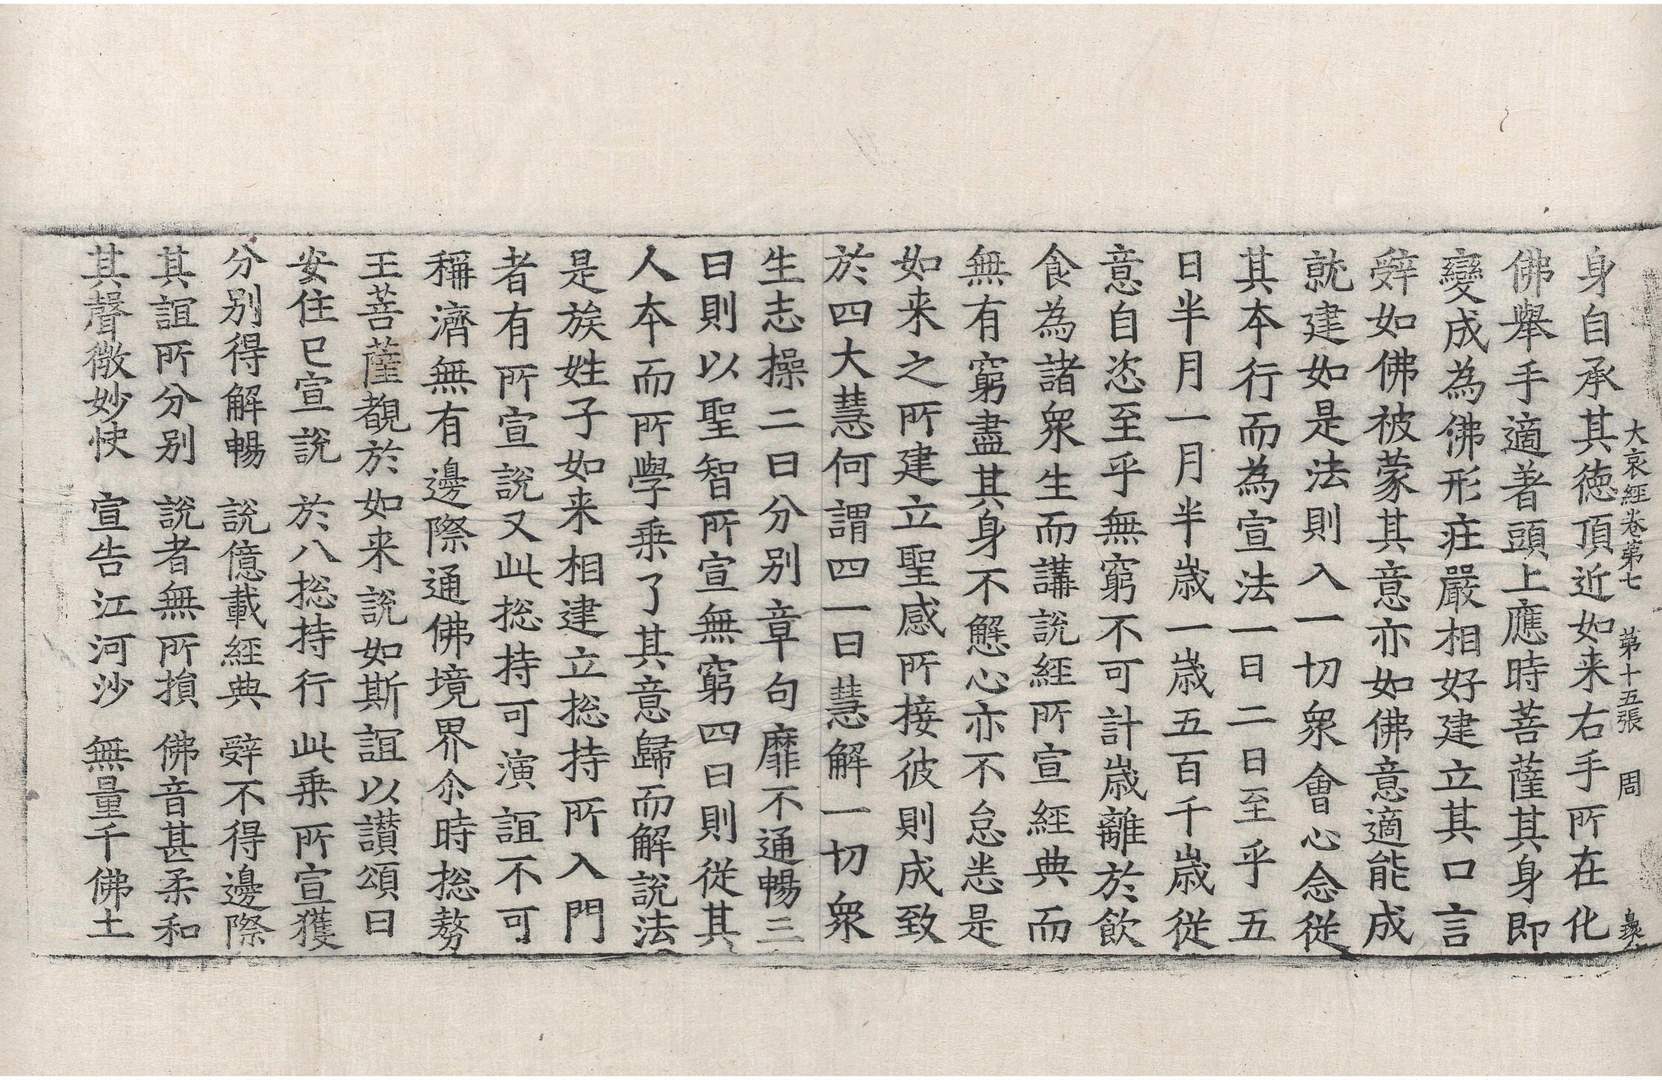 大哀經卷第七 第十五張 周
身自承其徳頂近如来右手所在化
佛舉手適著頭上應時菩薩其身即
變成為佛形疘嚴相好建立其口言
辤如佛被蒙其意亦如佛意適能成
就建如是法則入一切衆會心念從
其夲行而為宣法一日二日至乎五
日半月一月半歳一歳五百千歳從
意自恣至乎無窮不可計歳離於飲
食為諸衆生而講説經所宣經典而
無有窮盡其身不懈心亦不怠恙是
如来之所建立聖感所接彼則成致
於四大慧何謂四一曰慧解一切衆
生志操二曰分别章句靡不通暢三
曰則以聖智所宣無窮四曰則從其
人夲而所學乗了其意歸而解説法
是族姓子如来相建立捴持所入門
者有所宣説又此捴持可演誼不可
稱濟無有邊際通佛境界尒時捴勑
王菩薩覩於如来説如斯誼以讃頌曰
安住已宣説 於八捴持行 此乗所宣獲
分别得解暢 説億載經典 辤不得邊際
其誼所分别 説者無所損 佛音甚柔和
其聲微妙快 宣告江河沙 無量千佛土